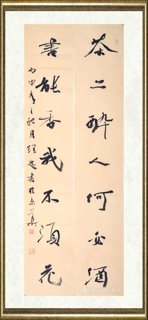 茶亦醉人何必酒
書能香我不須花
丙申年之秋月